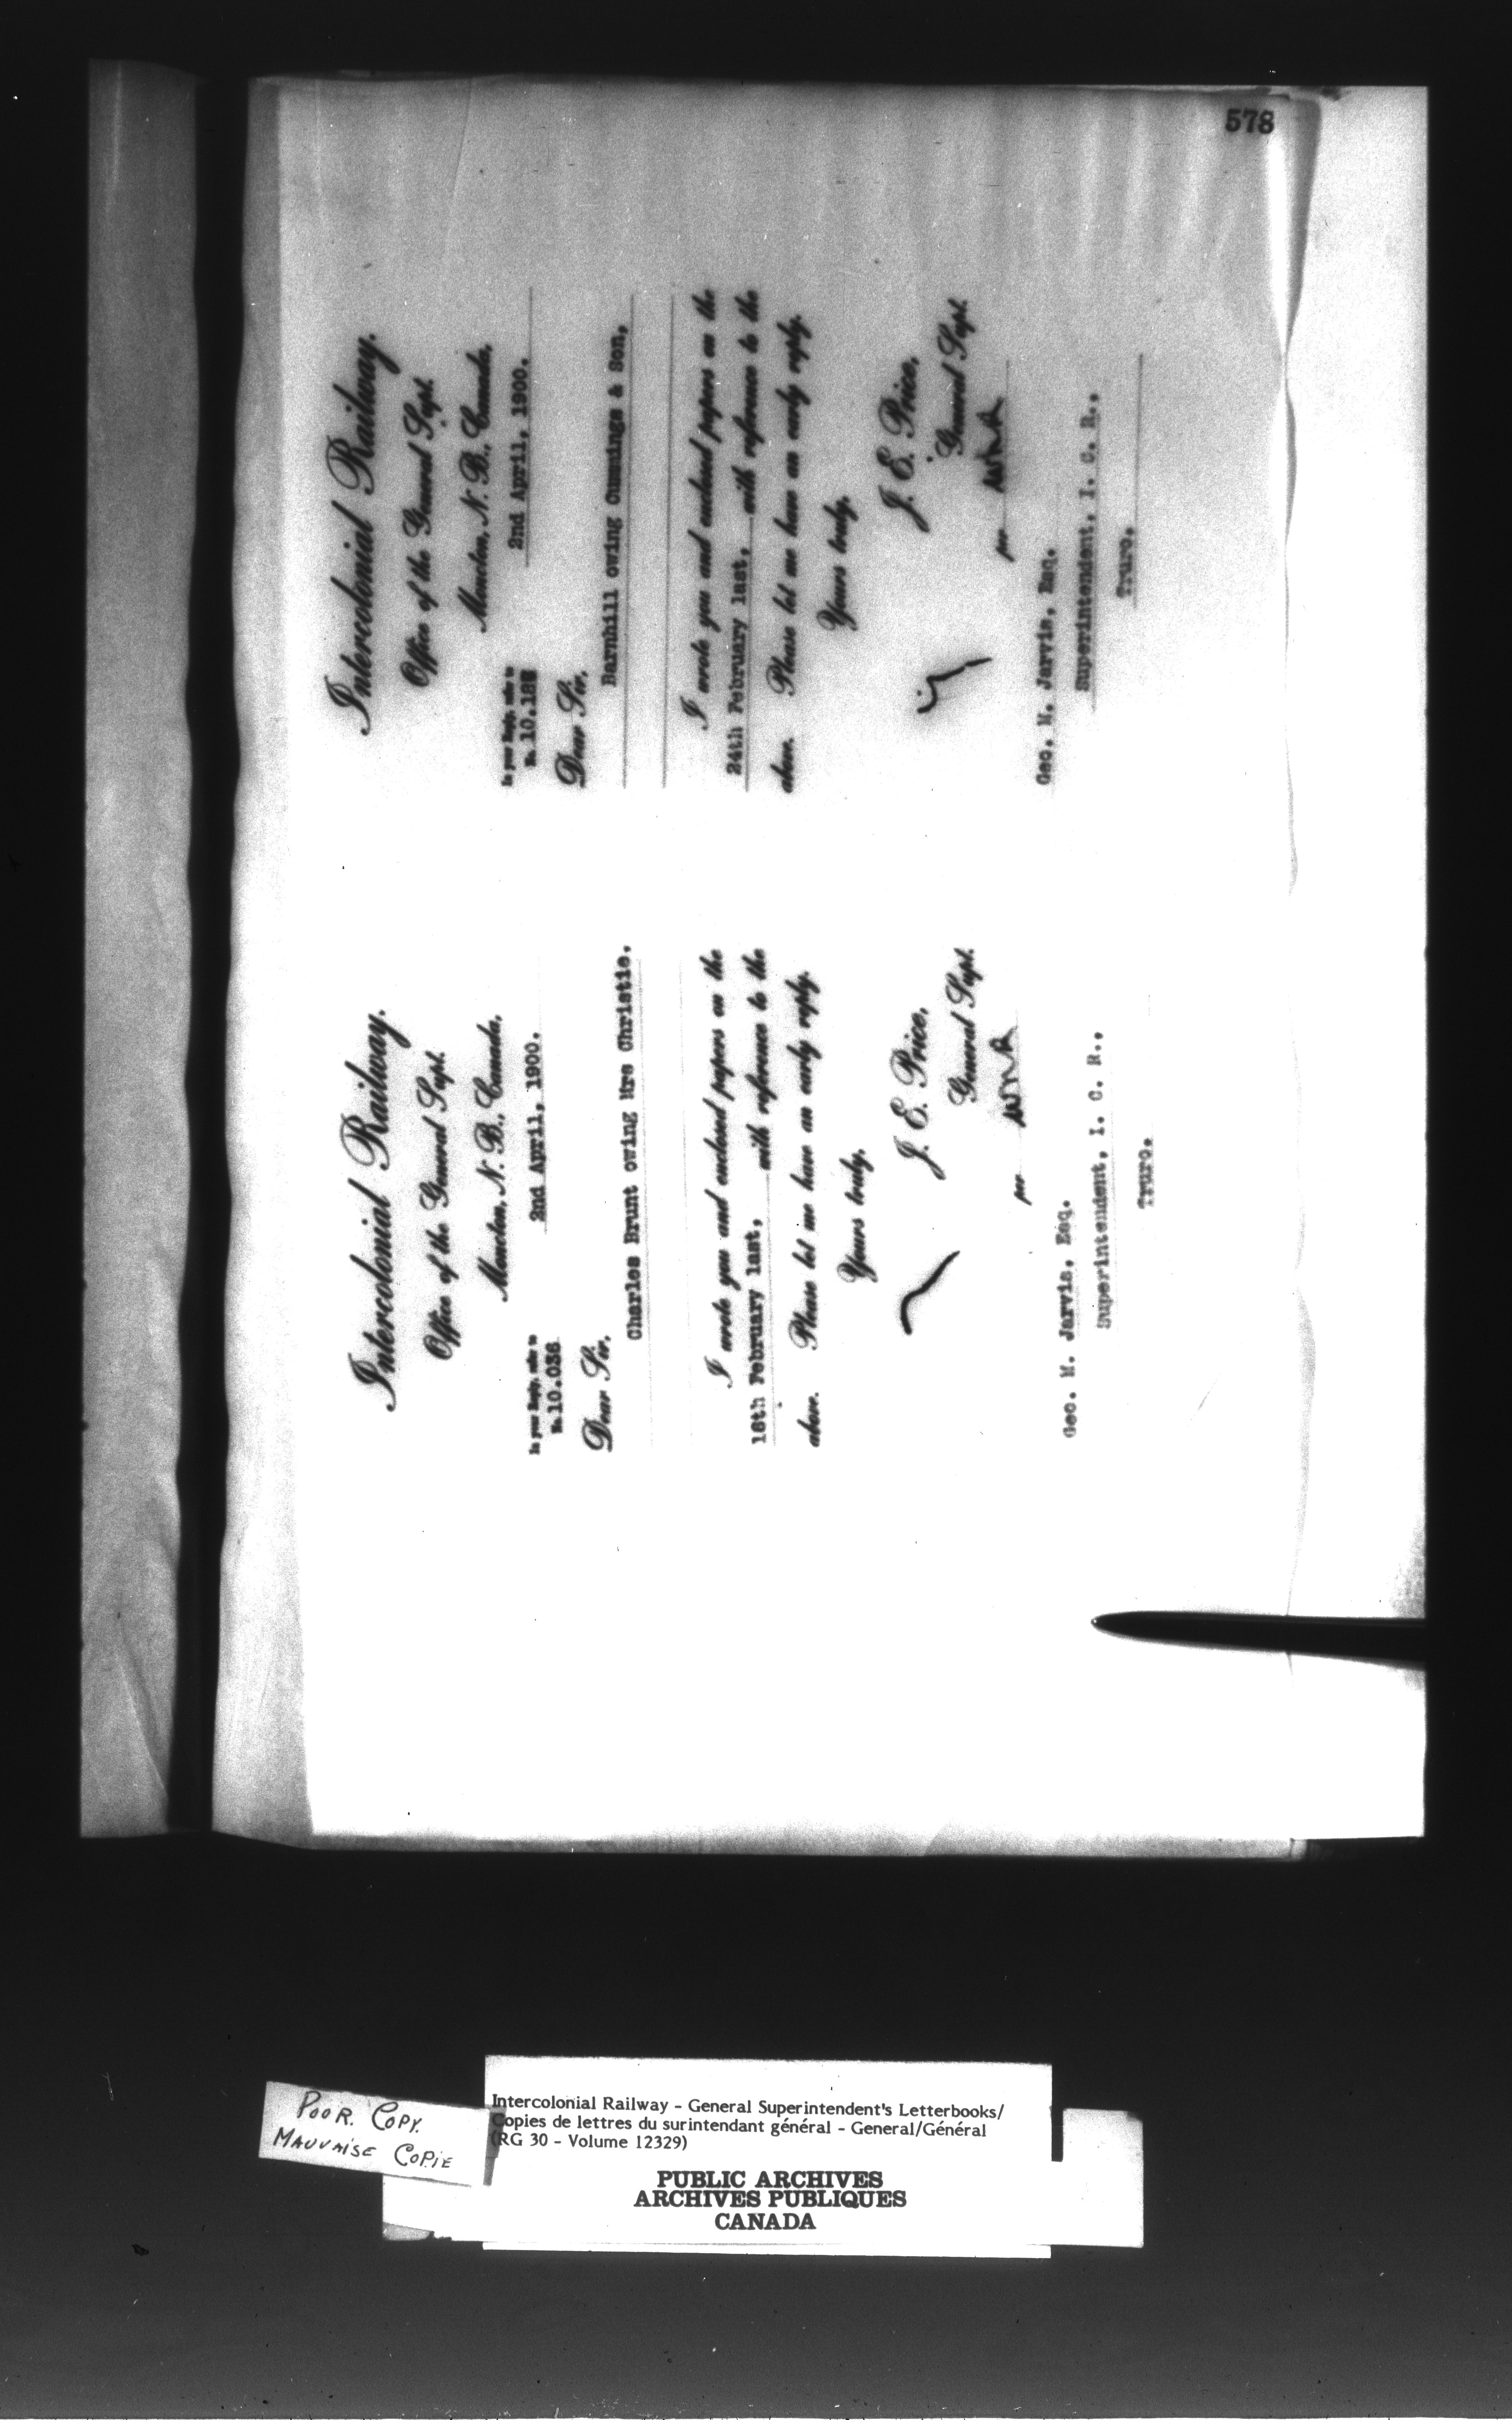 578
Intercolonial Railway.
Office of the General Supt.
Moncton, N. B., Canada,
2nd April, 1900.
In your Reply, refer to
No. 10.036
Dear Sir,
Charles Brunt owing Mrs Christie.
I wrote you and enclosed papers on the
16th February last, with reference to the
above. Please let me have an early reply.
Yours truly,
J. E. Price,
General Supt.
per
Geo. M. Jarvis, Esq.
Superintendent, I. C. R.,
Truro.
Intercolonial Railway.
Office of the General Supt.
Moncton, N. B., Canada,
2nd April, 1900.
In your Reply, refer to
No.
Dear Sir,
Barnhill owing Cummings & Son,
I wrote you and enclosed papers on the
24th February last, with reference to the
above. Please let me have an early reply.
Yours truly,
J. E. Price,
General Supt.
per
Geo. M. Jarvis, Esq.
Superintendent, I. C. R.,
Truro.
POOR COPY.
MAUVAISE COPIE
Intercolonial Railway - General Superintendent's Letterbooks/
Copies de lettres du surintendant général - General/Général
(RG 30 - Volume 12329)
PUBLIC ARCHIVES
ARCHIVES PUBLIQUES
CANADA